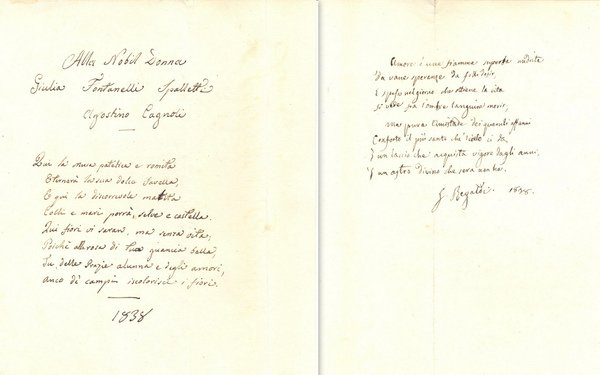 Alla Nobil Donna
Giulia Fontanelli Spalletti
Agostino Cagnoli
Qui la musa patetica e romita
Eternerà la sua dolce favella,
E qui la discorrevole matita
Colli e mari porrà, selve e castella.
Qui fiori vi saran, ma senza vita,
Poichè alla rosa di tua guancia bella,
Tu, delle Grazie alunna e degli amori,
anco di campi i fiori.
1838
Amore è una fiamma superba nudrita
Da vane speranze da folli desir,
È spesso che la vita
Si vive fra l'ombre languire morir;
Ma pura Amistade dei quanti affanni
Conforto il più santo che il cielo ci dà
È un laccio che acquista vigore dagli anni,
È un astro divino che sera non ha.
G. Regaldi 1838.